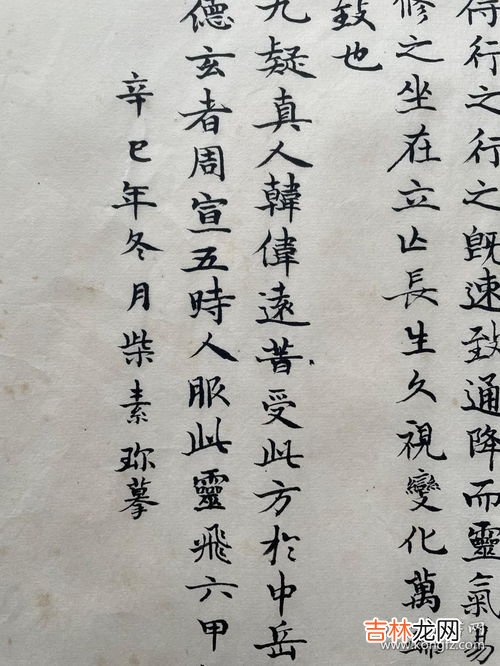 得行之行之既速致通降而靈氣易
修之坐在立亡長生久視變化萬
致也
九疑真人韓偉遠昔受此方於中岳
德玄者周宣五時人服此靈飛六甲
辛巳年冬月柴素珎摹
吉林龙网
www.kongfz.com